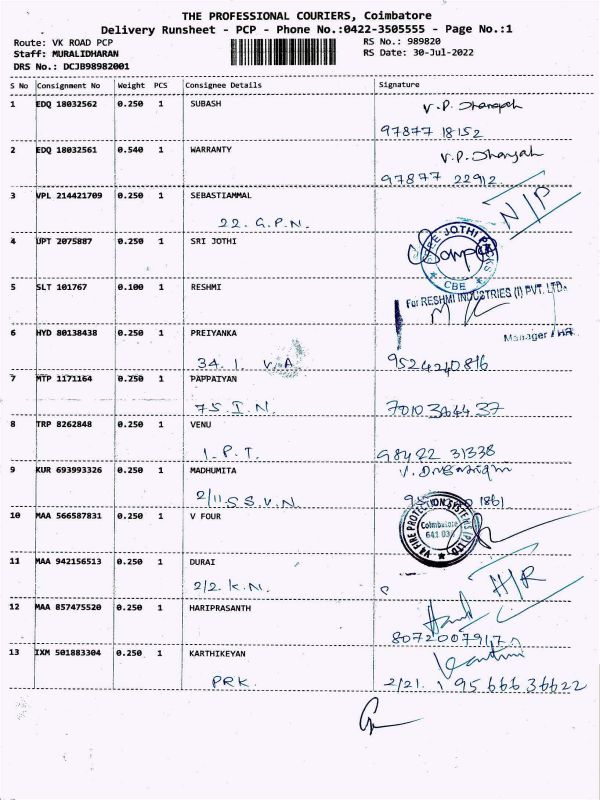 THE PROFESSIONAL COURIERS, Coimbatore
Delivery Runsheet - PCP - Phone No.:0422-3505555 - Page No.:1
Route: VK ROAD PCP
RS No.: 989820
Staff: MURALIDHARAN
RS Date: 30-Jul-2022
DRS No.: DCJB98982001
S No Consignment No Weight PCS Consignee Details Signature
1 EDQ 18032562 0.250 1 SUBASH
97877 18152
2 EDQ 18032561 0.540 1 WARRANTY
97877 22912
3 VPL 214421709 0.250 1 SEBASTIAMMAL N/P
22. G.P.N.
4 UPT 2075887 0.250 1 SRI JOTHI
CBE
5 SLT 101767 0.100 1 RESHMI
For RESHMI INDUSTRIES (I) PVT. LTD.
Manager / HR
6 HYD 80138438 0.250 1 PREIYANKA
34. 1. V.A 9524240816
7 MTP 1171164 0.250 1 PAPPAIYAN
75 I.N. 7010364437
8 TRP 8262848 0.250 1 VENU
1. P.T. 98422 31338
9 KUR 693993326 0.250 1 MADHUMITA
2/11 S.S.V.N. 1861
10 MAA 566587831 0.250 1 V FOUR
VA FIRE PROTECTION SYSTEMS (P) LTD
Coimbatore
11 MAA 942156513 0.250 1 DURAI
2/2. K.N.
12 MAA 857475520 0.250 1 HARIPRASANTH
13 IXM 501883304 0.250 1 KARTHIKEYAN
PRK. 2/21. 1 9566636622